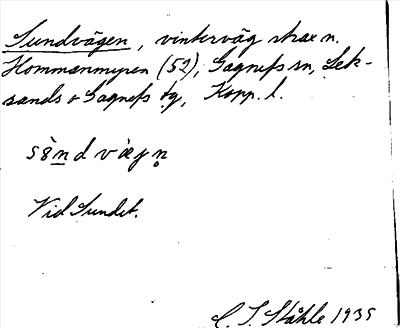 Sundvägen, vinterväg strax n.
Hommanmyren (52), Gagnefs sn, Lek-
sands o Gagnefs tg, Kopp. l.
Vid Sundet.
C. I. Ståhle 1935